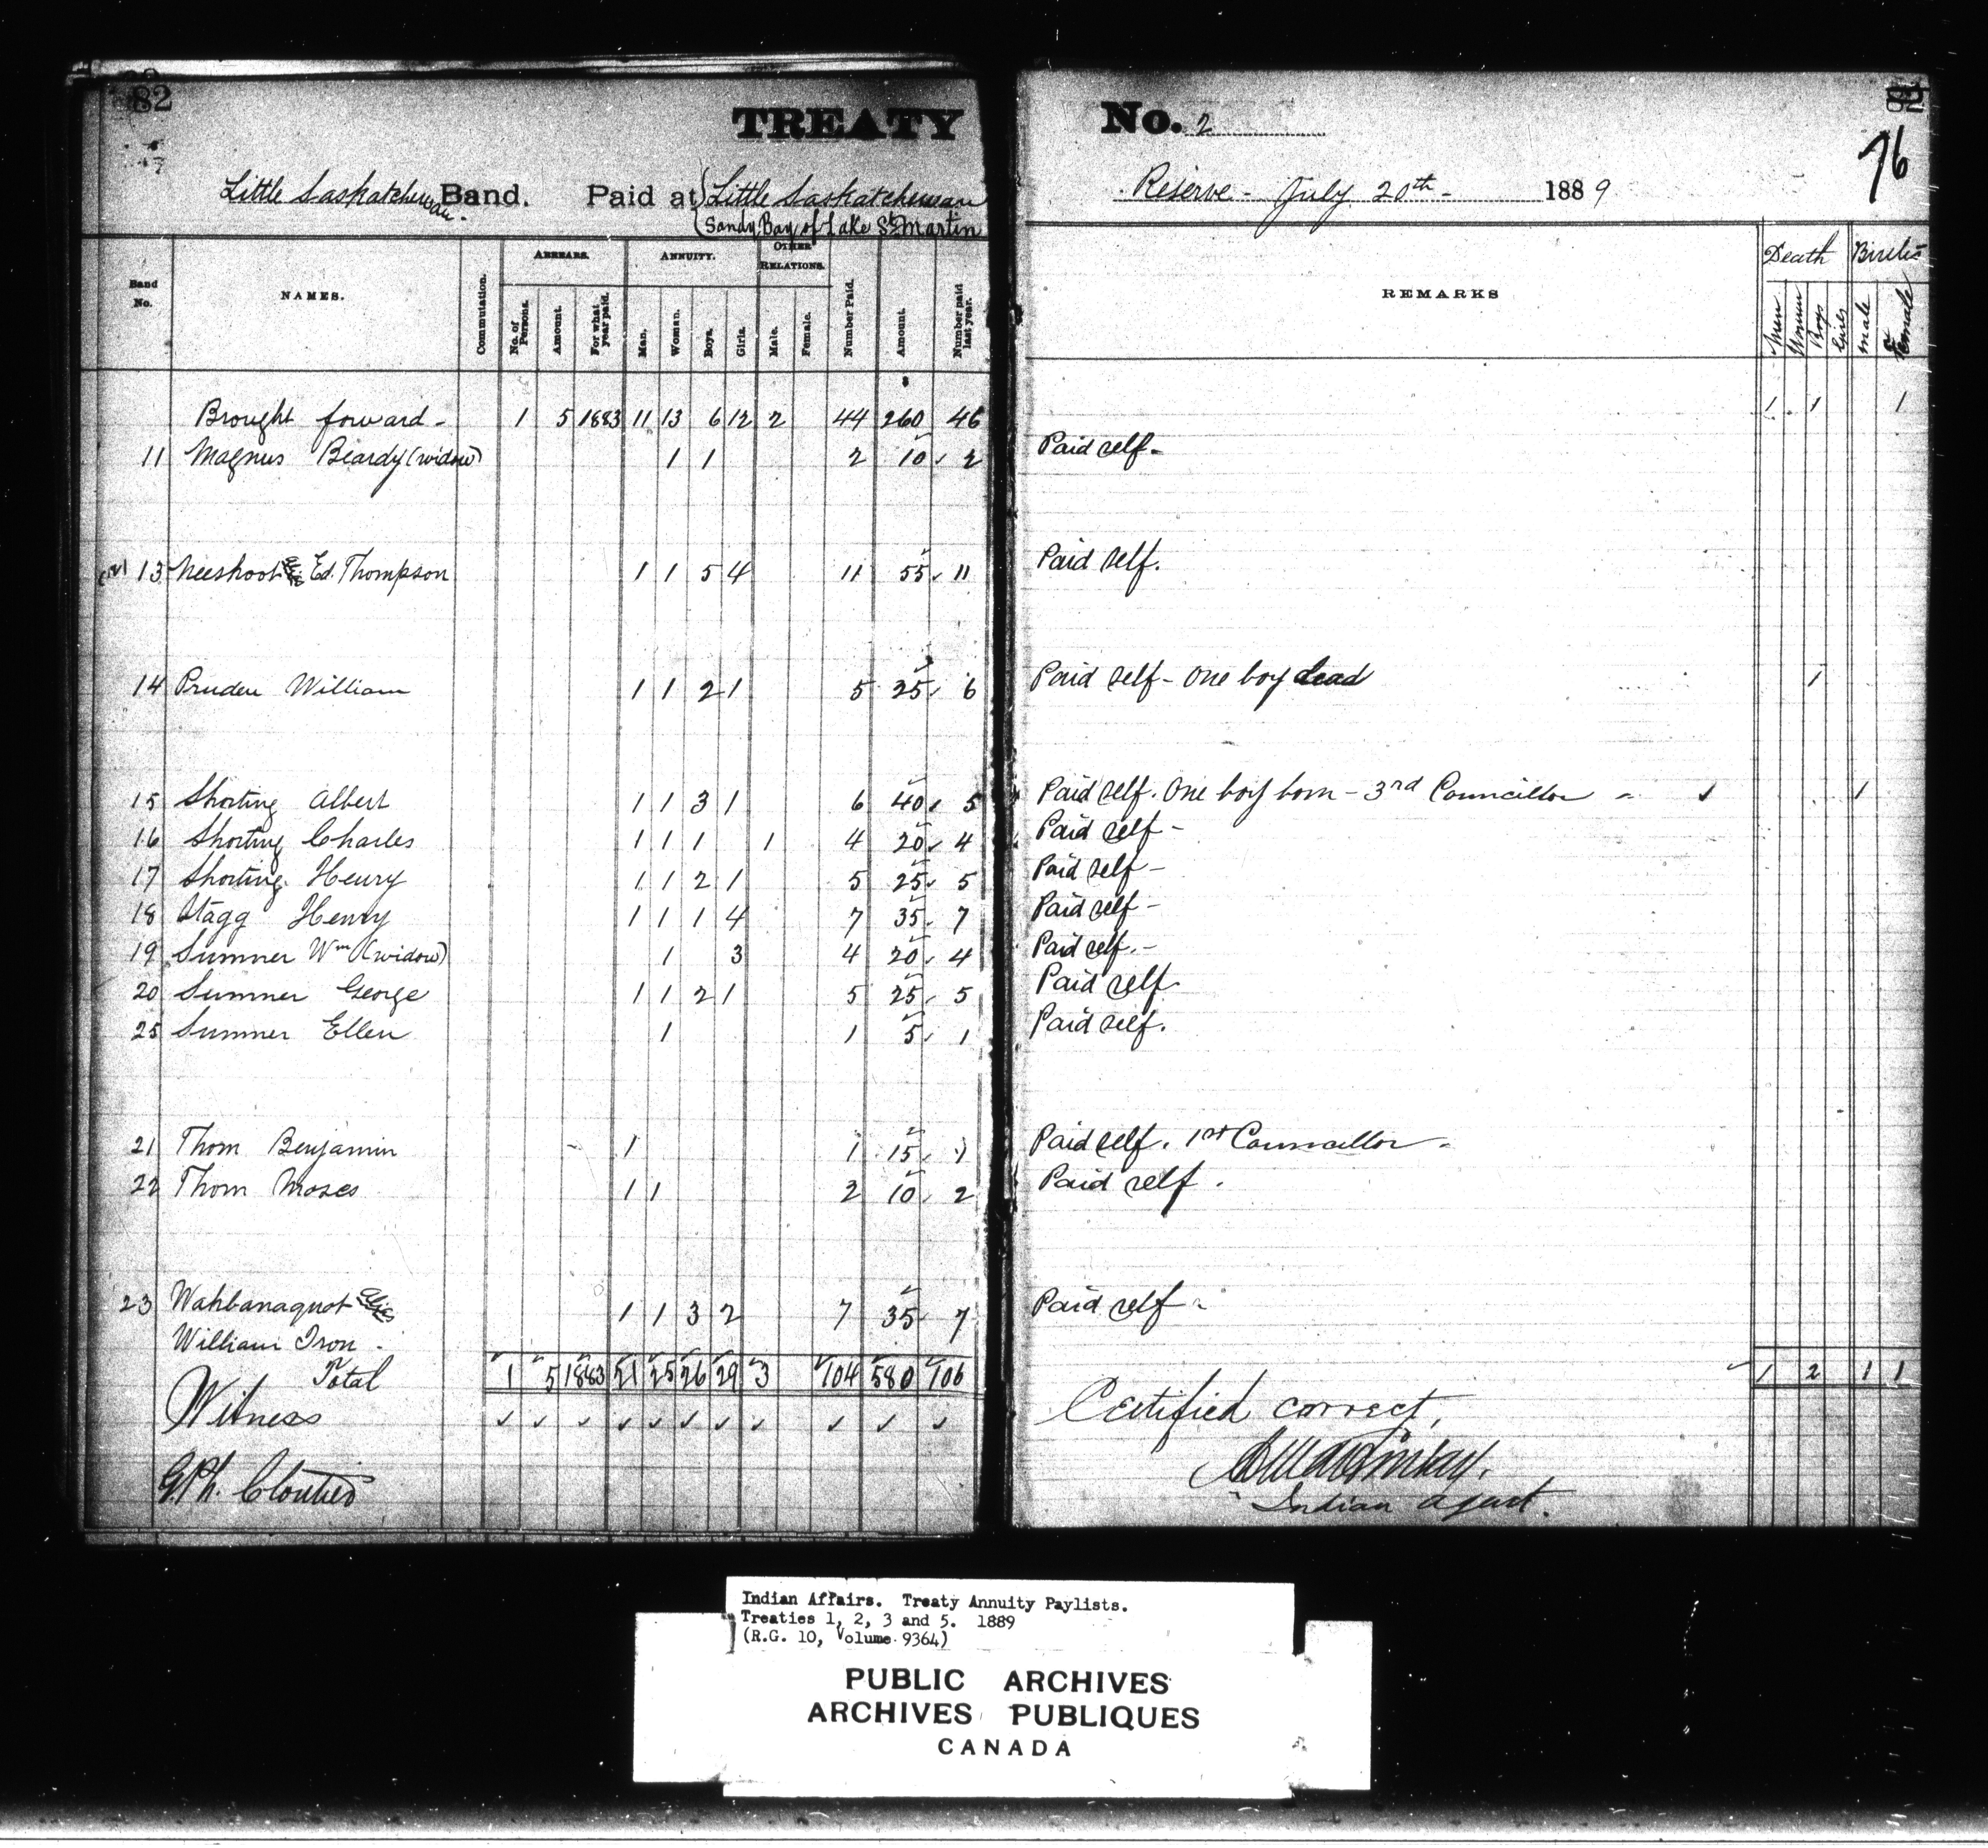 82
TREATY No. 2
82
76
Little Saskatchewan Band. Paid at Little Saskatchewan Reserve - July 20th - 1889
Sandy Bay of Lake St Martin
Band No. NAMES. Commutation. ARREARS. No. of Persons. Amount. For what year paid. ANNUITY. Man. Woman. Boys. Girls. OTHER RELATIONS. Male. Female. Number Paid. Amount. Number paid last year. REMARKS Death Men Women Boys Girls Births male Female
Brought forward - 1 5 1883 11 13 6 12 2 44 260 46 1 1 1
11 Magnus Beardy (widow) 1 1 2 10 2 Paid self -
13 Ed. Thompson 1 1 5 4 11 55 11 Paid self.
14 Pruden William 1 1 2 1 5 25 6 Paid self - One boy dead 1
15 Shorting Albert 1 1 3 1 6 40 5 Paid self. One boy born - 3rd Councillor - 1
16 Shorting Charles 1 1 1 1 4 20 4 Paid self -
17 Shorting Henry 1 1 2 1 5 25 5 Paid self -
18 Stagg Henry 1 1 1 4 7 35 7 Paid self -
19 Sumner Wm (widow) 1 3 4 20 4 Paid self. -
20 Sumner George 1 1 2 1 5 25 5 Paid self
25 Sumner Ellen 1 1 5 1 Paid self.
21 Thom Benjamin 1 1 15 1 Paid self. 1st Councillor -
22 Thom Moses 1 1 2 10 2 Paid self.
23 Wahbanaquot 1 1 3 2 7 35 7 Paid self -
William Iron -
Total 1 5 1883 21 25 26 29 3 104 580 106 1 2 1 1
Witness
Certified correct,
G.Ph. Cloutier
Indian agent.
Indian Affairs. Treaty Annuity Paylists.
Treaties 1, 2, 3 and 5. 1889
(R.G. 10, Volume 9364)
PUBLIC ARCHIVES
ARCHIVES PUBLIQUES
CANADA